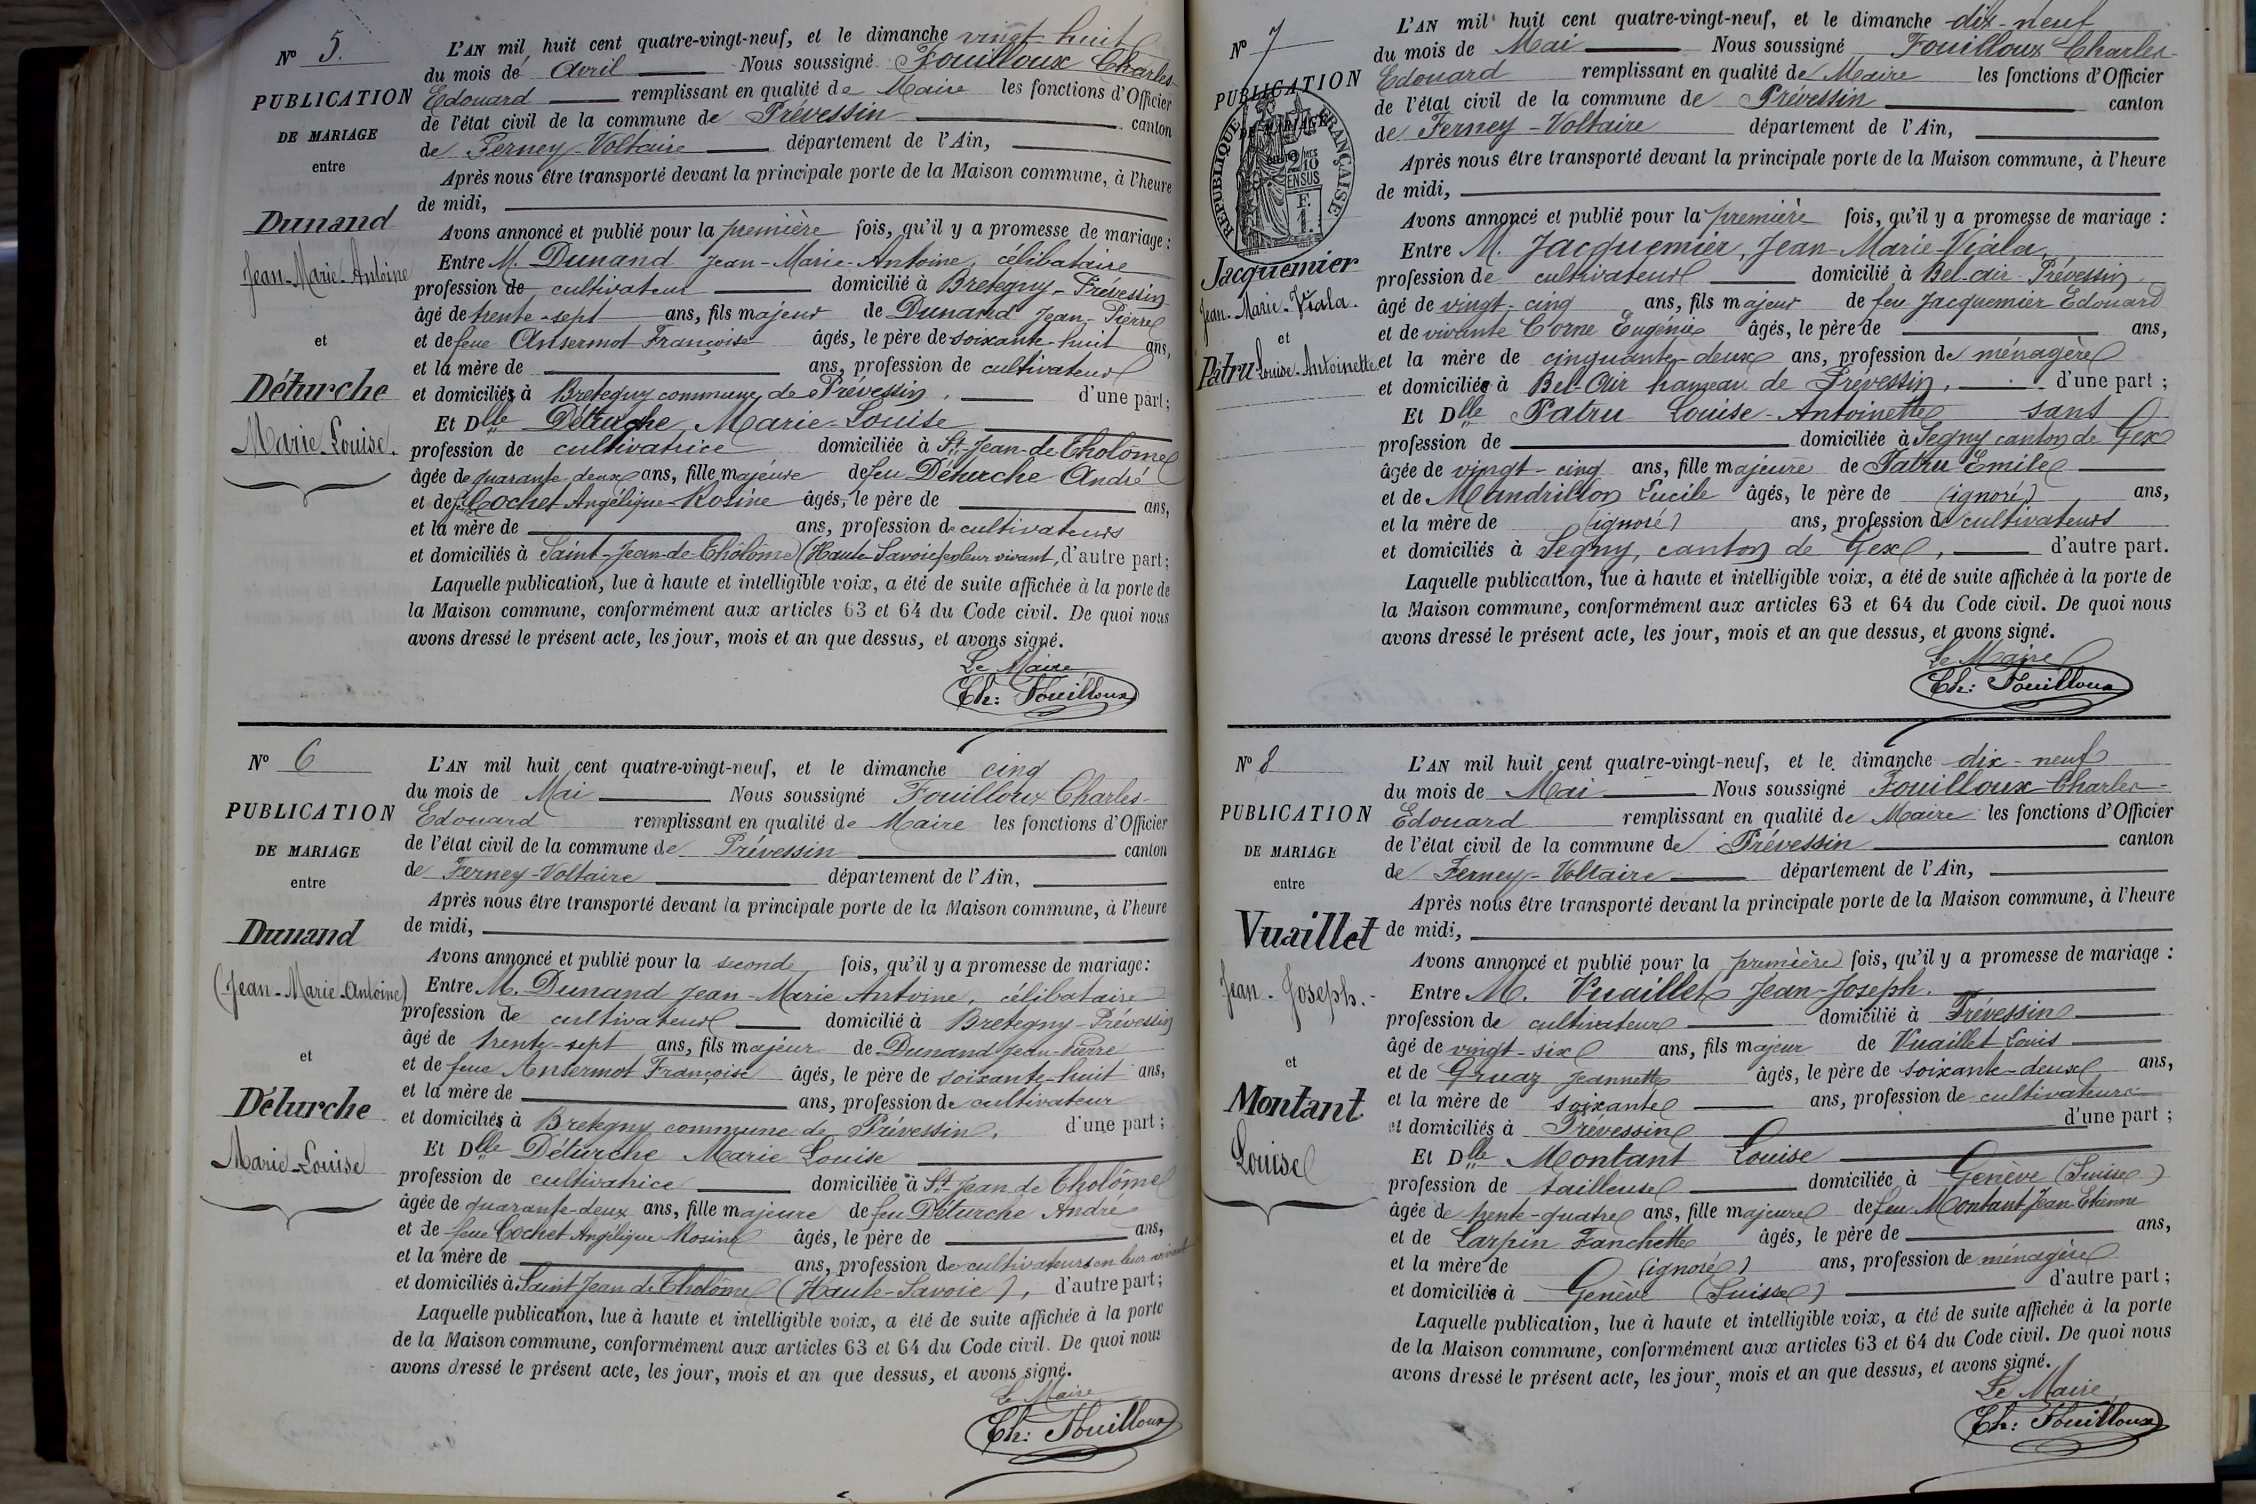 N° 5.
PUBLICATION
DE MARIAGE
entre
Dunand
Jean-Marie-Antoine
et
Déturche
Marie-Louise.
L'AN mil huit cent quatre-vingt-neuf, et le dimanche vingt-huit
du mois de Avril Nous soussigné Fouilloux Charles-
Edouard remplissant en qualité de Maire les fonctions d'Officier
de l'état civil de la commune de Prévessin canton
de Ferney-Voltaire département de l'Ain,
Après nous être transporté devant la principale porte de la Maison commune, à l'heure
de midi,
Avons annoncé et publié pour la première fois, qu'il y a promesse de mariage :
Entre M. Dunand Jean-Marie-Antoine, célibataire
profession de cultivateur domicilié à Bretegny-Prévessin
âgé de trente-sept ans, fils majeur de Dunand Jean-Pierre
et de feue Ansermot Françoise âgés, le père de soixante-huit ans,
et la mère de ans, profession de cultivateur
et domiciliés à Bretegny commune de Prévessin, d'une part ;
Et Dlle Déturche Marie-Louise
profession de cultivatrice domiciliée à St-Jean-de-Tholôme
âgée de quarante-deux ans, fille majeure de feu Déturche André
et de fe Cochet Angélique-Rosine âgés, le père de ans,
et la mère de ans, profession de cultivateurs
et domiciliés à Saint-Jean-de-Tholôme (Haute-Savoie) en leur vivant, d'autre part ;
Laquelle publication, lue à haute et intelligible voix, a été de suite affichée à la porte de
la Maison commune, conformément aux articles 63 et 64 du Code civil. De quoi nous
avons dressé le présent acte, les jour, mois et an que dessus, et avons signé.
Le Maire
Ch: Fouilloux
N° 6
PUBLICATION
DE MARIAGE
entre
Dunand
(Jean-Marie-Antoine)
et
Déturche
Marie-Louise
L'AN mil huit cent quatre-vingt-neuf, et le dimanche cinq
du mois de Mai Nous soussigné Fouilloux Charles-
Edouard remplissant en qualité de Maire les fonctions d'Officier
de l'état civil de la commune de Prévessin canton
de Ferney-Voltaire département de l'Ain,
Après nous être transporté devant la principale porte de la Maison commune, à l'heure
de midi,
Avons annoncé et publié pour la seconde fois, qu'il y a promesse de mariage :
Entre M. Dunand Jean-Marie Antoine, célibataire
profession de cultivateur domicilié à Bretegny-Prévessin
âgé de trente-sept ans, fils majeur de Dunand Jean-Pierre
et de feue Ansermot Françoise âgés, le père de soixante-huit ans,
et la mère de ans, profession de cultivateur
et domiciliés à Bretegny commune de Prévessin, d'une part ;
Et Dlle Déturche Marie Louise
profession de cultivatrice domiciliée à St-Jean de Tholôme
âgée de quarante-deux ans, fille majeure de feu Déturche André
et de feue Cochet Angélique Rosine âgés, le père de ans,
et la mère de ans, profession de cultivateurs en leur vivant
et domiciliés à Saint Jean de Tholôme (Haute-Savoie), d'autre part ;
Laquelle publication, lue à haute et intelligible voix, a été de suite affichée à la porte
de la Maison commune, conformément aux articles 63 et 64 du Code civil. De quoi nous
avons dressé le présent acte, les jour, mois et an que dessus, et avons signé.
Le Maire
Ch: Fouilloux
N° 7
PUBLICATION
DE MARIAGE
RÉPUBLIQUE FRANÇAISE
2/10 EN SUS
F.
1.
Jacquemier
Jean-Marie-Viala.
et
Patru Louise-Antoinette
L'AN mil huit cent quatre-vingt-neuf, et le dimanche dix-neuf
du mois de Mai Nous soussigné Fouilloux Charles-
Edouard remplissant en qualité de Maire les fonctions d'Officier
de l'état civil de la commune de Prévessin canton
de Ferney-Voltaire département de l'Ain,
Après nous être transporté devant la principale porte de la Maison commune, à l'heure
de midi,
Avons annoncé et publié pour la première fois, qu'il y a promesse de mariage :
Entre M. Jacquemier, Jean-Marie-Viala,
profession de cultivateur domicilié à Bel-air-Prévessin,
âgé de vingt-cinq ans, fils majeur de feu Jacquemier Edouard
et de vivante Corne Eugénie âgés, le père de ans,
et la mère de cinquante-deux ans, profession de ménagère
et domiciliée à Bel-Air hameau de Prévessin, d'une part ;
Et Dlle Patru Louise-Antoinette sans
profession de domiciliée à Segny canton de Gex
âgée de vingt-cinq ans, fille majeure de Patru Emile
et de Mandrillon Lucile âgés, le père de (ignoré) ans,
et la mère de (ignoré) ans, profession de cultivateurs
et domiciliés à Segny, canton de Gex, d'autre part.
Laquelle publication, lue à haute et intelligible voix, a été de suite affichée à la porte de
la Maison commune, conformément aux articles 63 et 64 du Code civil. De quoi nous
avons dressé le présent acte, les jour, mois et an que dessus, et avons signé.
Le Maire
Ch: Fouilloux
N° 8
PUBLICATION
DE MARIAGE
entre
Vuaillet
Jean-Joseph.-
et
Montant
Louise
L'AN mil huit cent quatre-vingt-neuf, et le dimanche dix-neuf
du mois de Mai Nous soussigné Fouilloux Charles-
Edouard remplissant en qualité de Maire les fonctions d'Officier
de l'état civil de la commune de Prévessin canton
de Ferney-Voltaire département de l'Ain,
Après nous être transporté devant la principale porte de la Maison commune, à l'heure
de midi,
Avons annoncé et publié pour la première fois, qu'il y a promesse de mariage :
Entre M. Vuaillet Jean-Joseph.
profession de cultivateur domicilié à Prévessin
âgé de vingt-six ans, fils majeur de Vuaillet Louis
et de Gruaz Jeannette âgés, le père de soixante-deux ans,
et la mère de soixante ans, profession de cultivateurs
et domiciliés à Prévessin d'une part ;
Et Dlle Montant Louise
profession de tailleuse domiciliée à Genève (Suisse)
âgée de trente-quatre ans, fille majeure de feu Montant Jean Etienne
et de Larpin Fanchette âgés, le père de ans,
et la mère de (ignoré) ans, profession de ménagère
et domiciliée à Genève (Suisse) d'autre part ;
Laquelle publication, lue à haute et intelligible voix, a été de suite affichée à la porte
de la Maison commune, conformément aux articles 63 et 64 du Code civil. De quoi nous
avons dressé le présent acte, les jour, mois et an que dessus, et avons signé.
Le Maire
Ch: Fouilloux